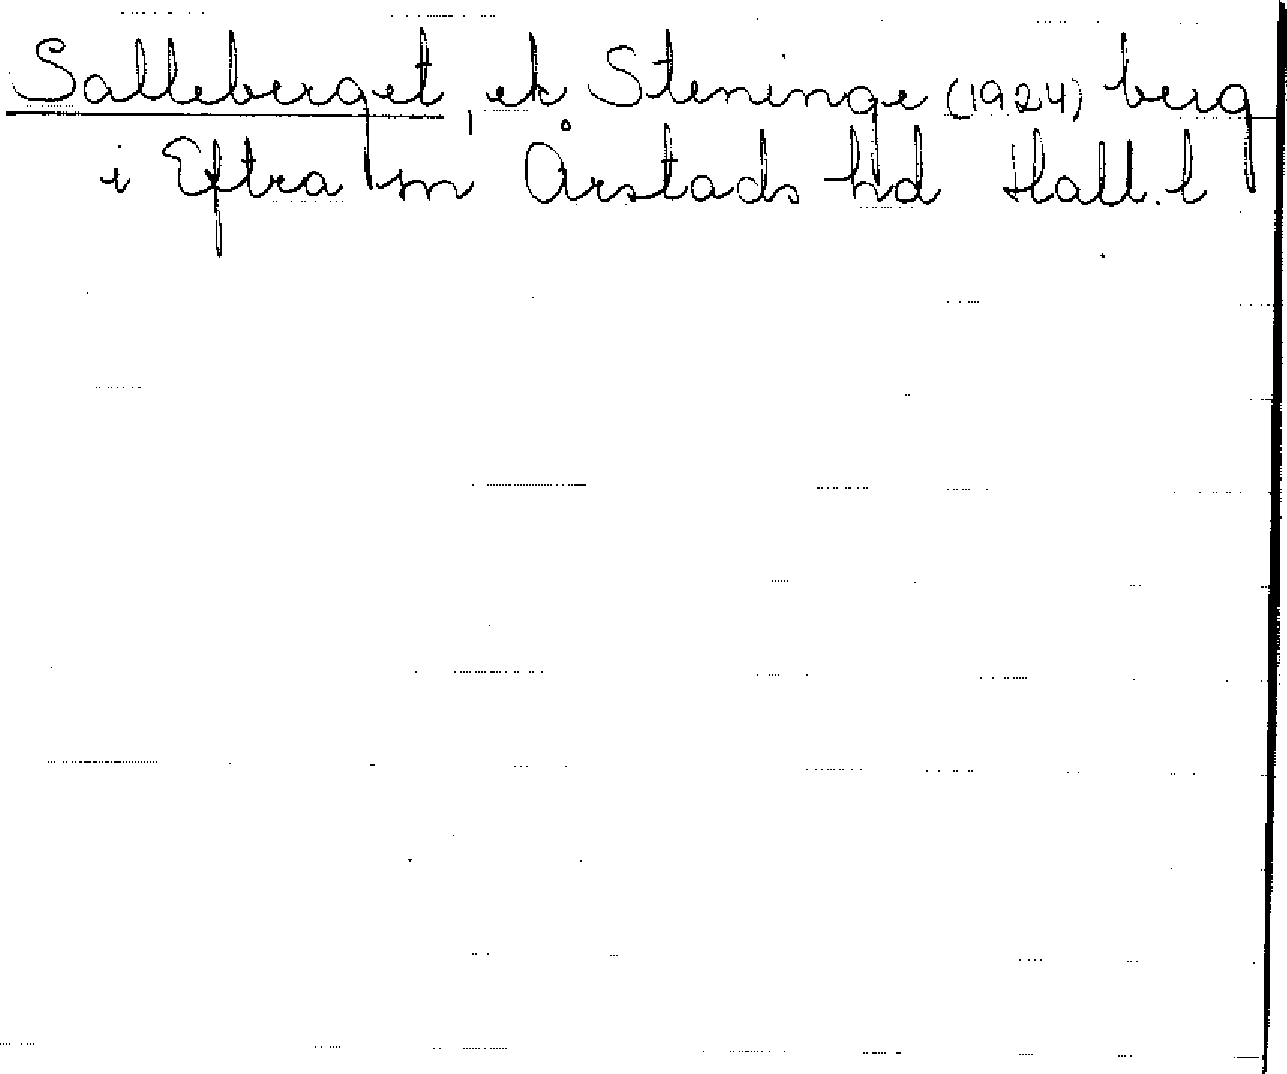 Salleberget, ek Steninge (1924) berg
i Eftra sn Årstads hd Hall. l